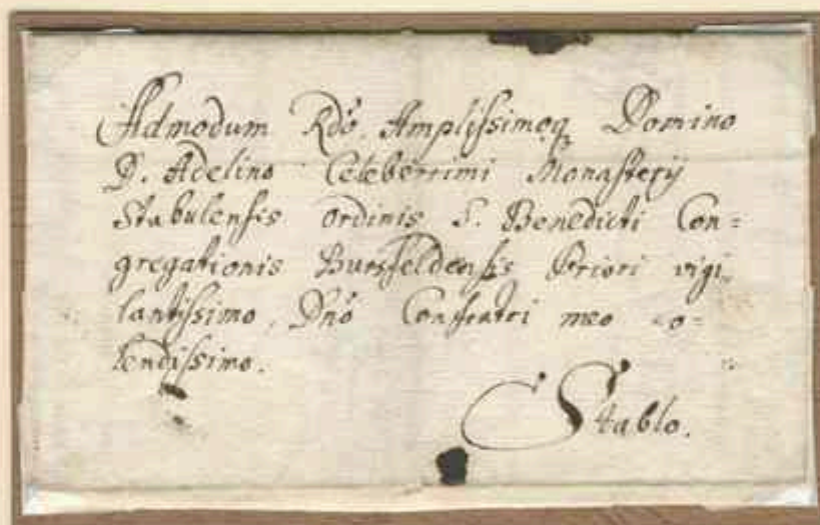 Admodum Rdo. Amplissimoq Domino
D. Adelino Celeberrimi Monasterij
Stabulensis ordinis S. Benedicti Con=
gregationis Bursfeldensis Priori vigi=
lantissimo, Dno Confratri meo co=
lendissimo.
Stablo.